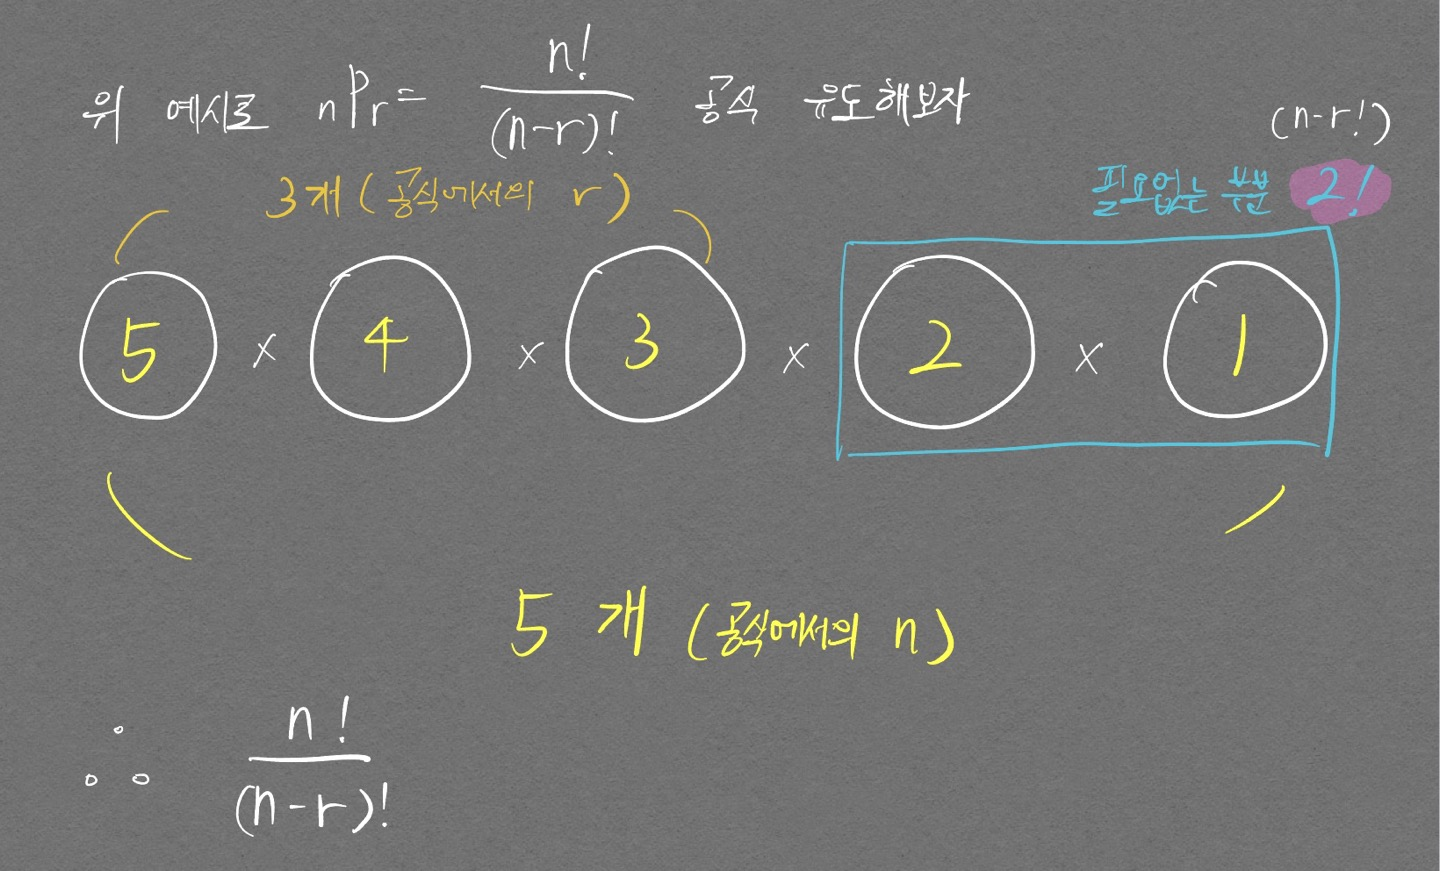 위 예시로 nPr = n! / (n-r)! 공식 유도해보자
(n-r!)
3개 (공식에서의 r)
필요없는 부분 2!
5 × 4 × 3 × 2 × 1
5개 (공식에서의 n)
∴ n! / (n-r)!